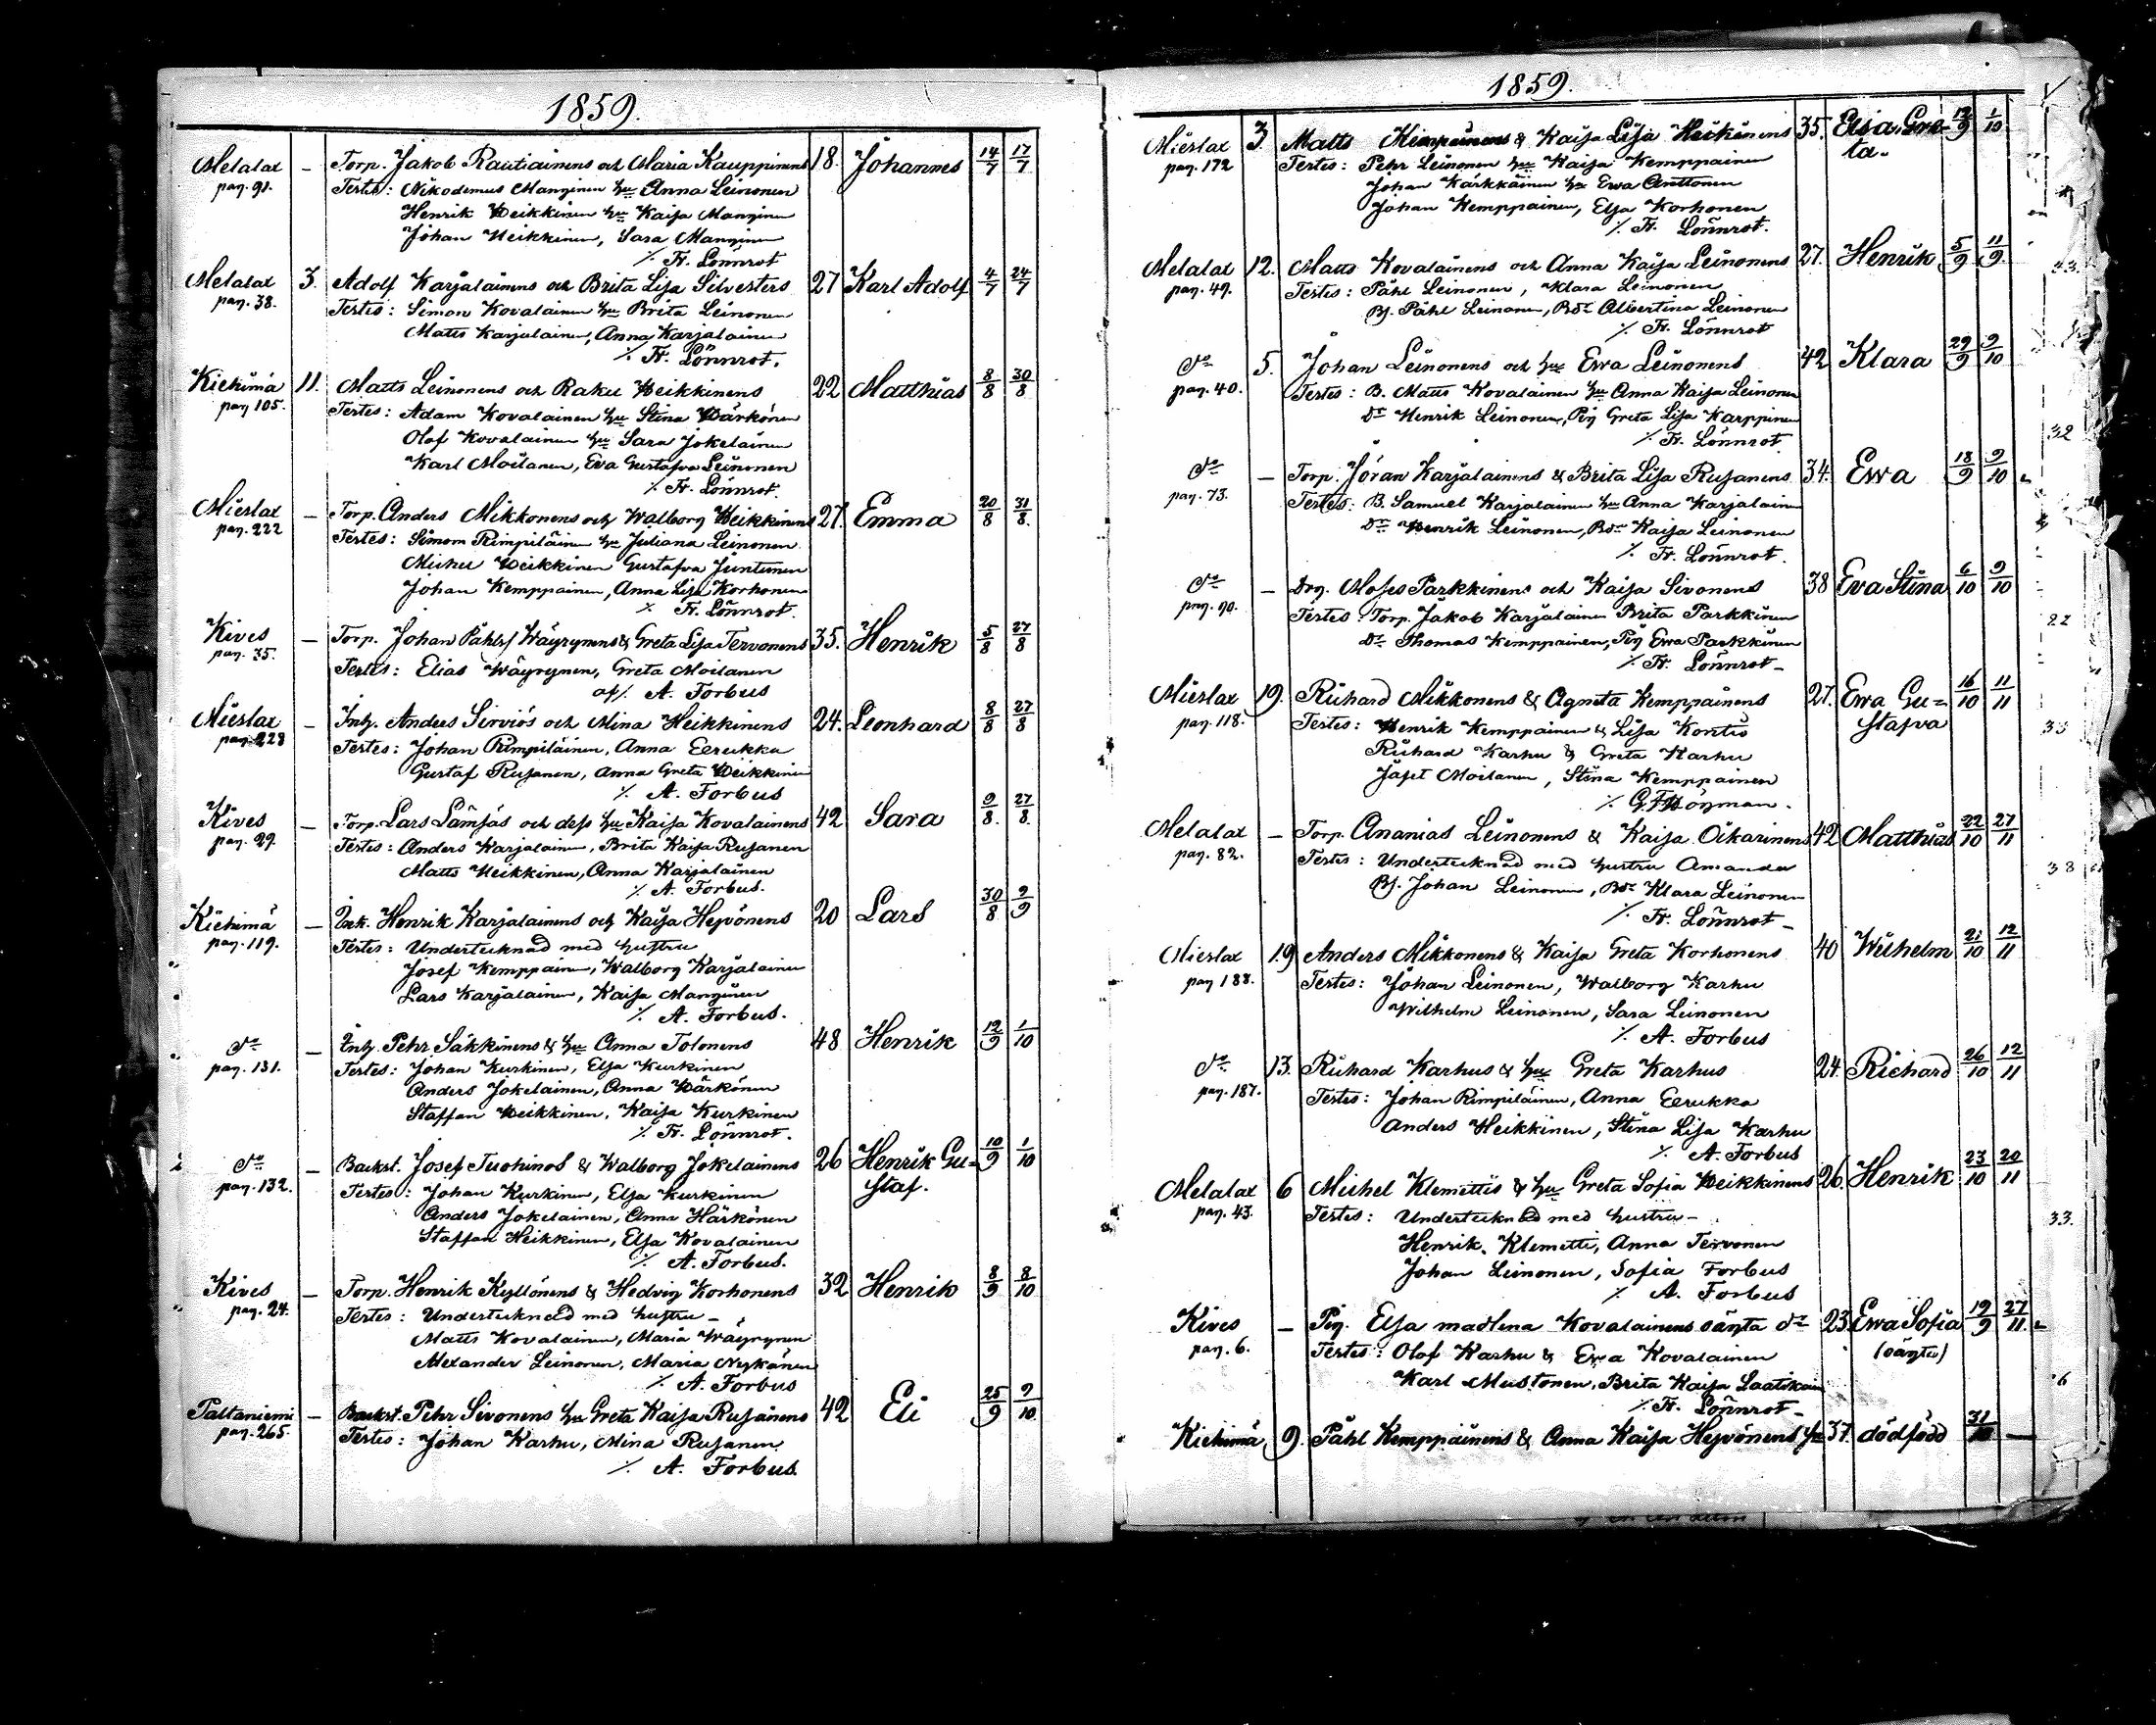 1859.
Melalax – Torp. Jakob Rautiainens och Maria Kauppinens 18. Johannes 14/7 17/7
pag. 91. Testes: Nikodemus Manginen hu Anna Leinonen
Henrik Heikkinen hu Kaisa Manginen
Johan Heikkinen, Sara Manginen
/. Fr. Lönnrot
Melalax 3. Adolf Karjalainens och Brita Lisa Silvesters 27 Karl Adolf 4/7 24/7
pag. 38. Testes: Simon Kovalainen hu Brita Leinonen
Matts Karjalainen, Anna Karjalainen
/. Fr. Lönnrot.
Kiehimä 11. Matts Leinonens och Rakel Heikkinens 22 Matthias 8/8 30/8
pag 105. Testes: Adam Kovalainen hu Stina Härkönen
Olof Kovalainen hu Sara Jokelainen
Karl Moilanen, Eva Gustafva Leinonen
/. Fr. Lönnrot.
Mieslax – Torp. Anders Mikkonens och Walborg Heikkinens 27. Emma 20/8 31/8.
pag. 222 Testes: Simon Rimpiläinen hu Juliana Leinonen
Michel Heikkinen Gustafva Juntunen
Johan Kemppainen, Anna Lisa Korhonen
/. Fr. Lönnrot.
Kives – Torp. Johan Påhlsf Wäyrynens & Greta Lisa Tervonens 35. Henrik 5/8 27/8
pag. 35. Testes: Elias Wäyrynen, Greta Moilanen
af/. A. Forbus
Mieslax – Inh. Anders Sirviös och Mina Heikkinens 24. Leonhard 8/8 27/8
pag. 228 Testes: Johan Rimpiläinen, Anna Eerukka
Gustaf Rusanen, Anna Greta Heikkinen
/. A. Forbus
Kives – Torp. Lars Lämsäs och dess hu Kaisa Kovalainens 42 Sara 9/8. 27/8.
pag. 29. Testes: Anders Karjalainen, Brita Kaisa Rusanen
Matts Heikkinen, Anna Karjalainen
/. A. Forbus.
Kiehimä – Henrik Karjalainens och Kaisa Heyvönens 20 Lars 30/8 2/9
pag. 119. Testes: Undertecknad med hustru
Josef Kemppainen, Walborg Karjalainen
Lars Karjalainen, Kaisa Manginen
/. A. Forbus.
Do – Inh. Pehr Säkkinens & hu Anna Tolonens 48 Henrik 12/9 1/10
pag. 131. Testes: Johan Kurkinen, Elsa Kurkinen
Anders Jokelainen, Anna Härkönen
Staffan Heikkinen, Kaisa Kurkinen
/. Fr. Lönnrot.
Do – Backst. Josef Tuohinos & Walborg Jokelainens 26 Henrik Gu- 10/9 1/10
pag. 132. Testes: Johan Kurkinen, Elsa Kurkinen staf.
Anders Jokelainen, Anna Härkönen
Staffan Heikkinen, Elsa Kovalainen
/. A. Forbus.
Kives – Torp. Henrik Kyllönens & Hedvig Korhonens 32 Henrik 8/9 8/10
pag. 24. Testes: Undertecknad med hustru –
Matts Kovalainen, Maria Wäyrynen
Alexander Leinonen, Maria Nykänen
/. A. Forbus
Paltaniemi – Backst. Pehr Sivonens hu Greta Kaisa Rusanens 42 Eli 25/9 9/10.
pag. 265. Testes: Johan Karhu, Mina Rusanen
/. A. Forbus.
1859.
Mieslax 3. Matts Kemppainens & Kaisa Lisa Heikinens 35. Elsa Gre- 12/9 1/10
pag. 172 Testes: Pehr Leinonen hu Kaisa Kemppainen ta.
Johan Kärkkäinen hu Ewa Anttonen
Johan Kemppainen, Elsa Korhonen
/. Fr. Lönnrot.
Melalax 12. Matts Kovalainens och Anna Kaisa Leinonens 27. Henrik 5/9 11/9.
pag. 49. Testes: Påhl Leinonen, Klara Leinonen
Bs. Påhl Leinonen, Bdr Albertina Leinonen
/. Fr. Lönnrot
Do 5. Johan Leinonens och hu Ewa Leinonens 42 Klara 29/9 9/10
pag. 40. Testes: B. Matts Kovalainen hu Anna Kaisa Leinonen
Dr Henrik Leinonen, Pig Greta Lisa Karppinen
/. Fr. Lönnrot
Do – Torp. Jöran Karjalainens & Brita Lisa Rusanens 34. Ewa 18/9 9/10
pag. 73. Testes: B. Samuel Karjalainen hu Anna Karjalainen
Dr Henrik Leinonen, Bdr Kaisa Leinonen
/. Fr. Lönnrot.
Do – Drg. Moses Parkkinens och Kaisa Sivonens 38 Eva Stina 6/10 9/10
pag. 90. Testes Torp. Jakob Karjalainen Brita Parkkinen
Dr Thomas Kemppainen, Pig Ewa Parkkinen
/. Fr. Lönnrot –
Mieslax 19. Richard Mikkonens & Agneta Kemppainens 27. Ewa Gu= 16/10 11/11
pag. 118. Testes: Henrik Kemppainen & Lisa Kontio stafva
Richard Karhu & Greta Karhu
Jafet Moilanen, Stina Kemppainen
/. G. F. Höyman.
Melalax – Torp. Ananias Leinonens & Kaisa Oikarinens 42 Matthias 22/10 27/11
pag. 82. Testes: Undertecknad med hustru Amanda
Bs. Johan Leinonen, Bdr Klara Leinonen
/. Fr. Lönnrot –
Mieslax 19 Anders Mikkonens & Kaisa Greta Korhonens 40 Wilhelm 21/10 12/11
pag 188. Testes: Johan Leinonen, Walborg Karhu
Wilhelm Leinonen, Sara Leinonen
/. A. Forbus
Do 13. Richard Karhus & hu Greta Karhus 24. Richard 26/10 12/11
pag. 187. Testes: Johan Rimpiläinen, Anna Eerukka
Anders Heikkinen, Stina Lisa Karhu
/. A. Forbus
Melalax 6 Michel Klemettis & hu Greta Sofia Heikkinens 26. Henrik 23/10 20/11
pag. 43. Testes: Undertecknad med hustru –
Henrik Klemetti, Anna Tervonen
Johan Leinonen, Sofia Forbus
/. A. Forbus
Kives – Pig. Elsa madlena Kovalainens oägta dr 23. Ewa Sofia 19/9 27/11.
pag. 6. Testes: Olof Karhu & Ewa Kovalainen (oägta)
Karl Mustonen, Brita Kaisa Laatikain
/. Fr. Lönnrot –
Kiehimä 9. Påhl Kemppainens & Anna Kaisa Heyvönens 37. dödfödd 31/10 —
33.
32
22
33
38
33.